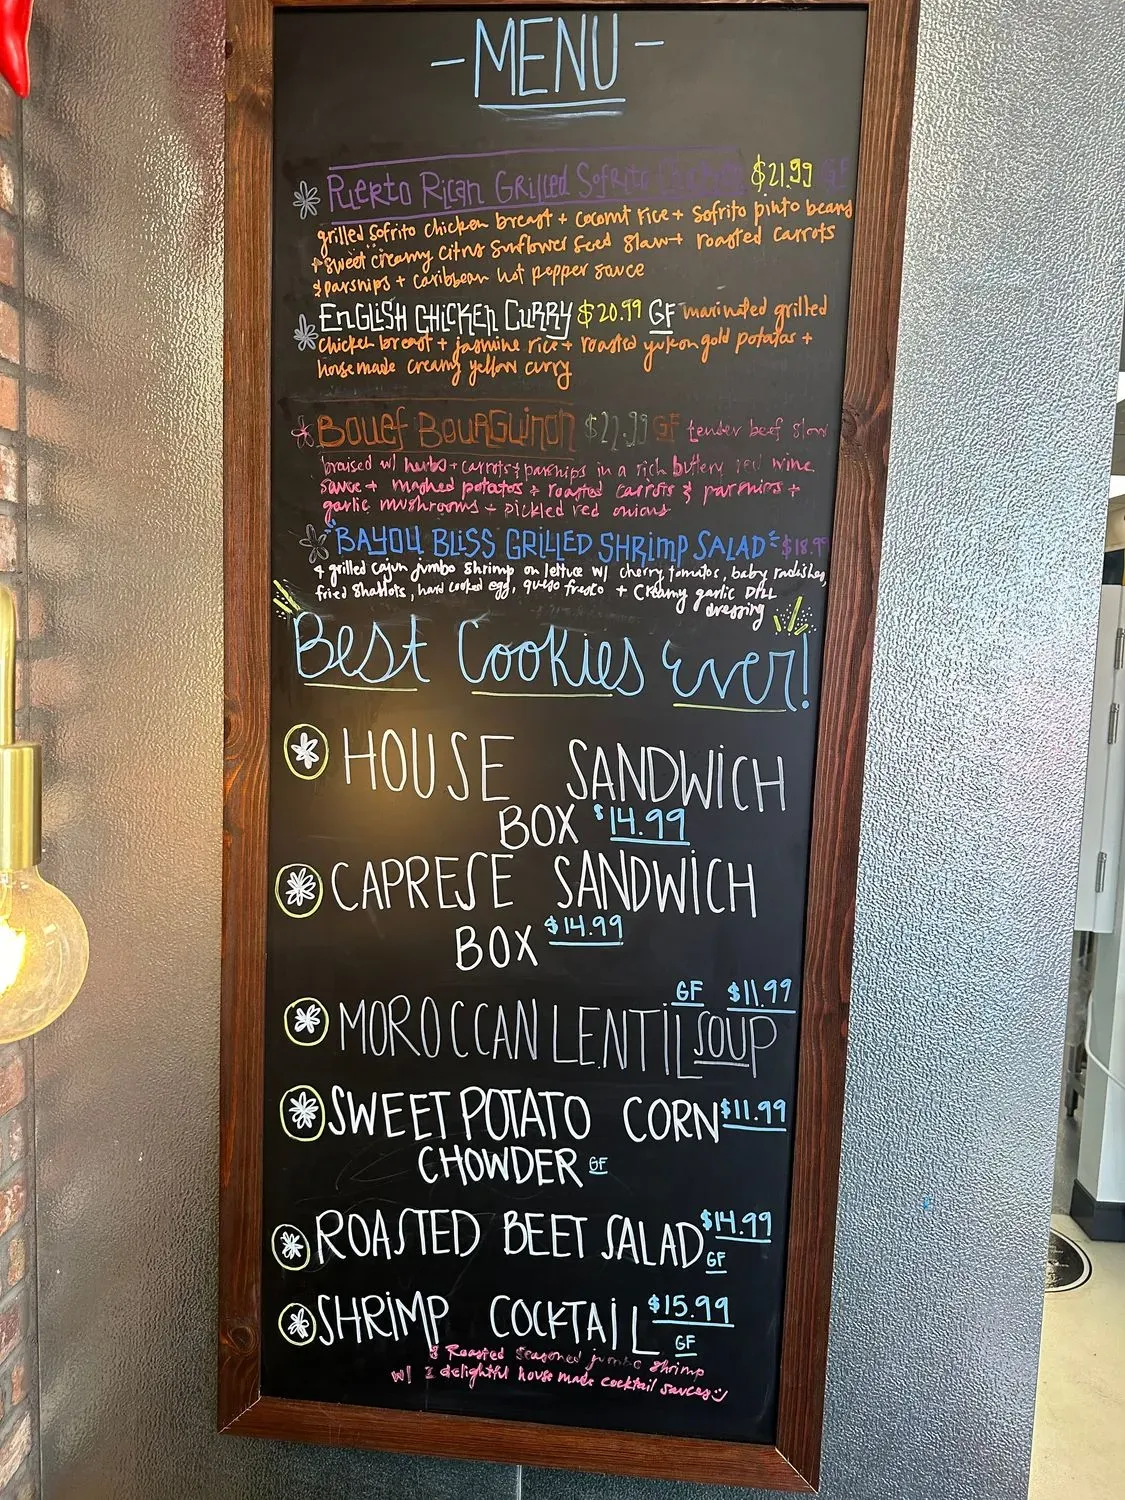 - MENU -
Puerto Rican Grilled Sofrito Chicken $21.99 GF
grilled sofrito chicken breast + coconut rice + sofrito pinto beans
+ sweet creamy citrus sunflower seed slaw + roasted carrots
& parsnips + caribbean hot pepper sauce
ENGLISH CHICKEN CURRY $20.99 GF marinated grilled
chicken breast + jasmine rice + roasted yukon gold potatoes +
house made creamy yellow curry
Bouef BourGuinon GF tender beef slow
braised w/ herbs + carrots + parsnips in a rich buttery red wine
sauce + mashed potatoes + roasted carrots & parsnips +
garlic mushrooms + pickled red onions
"BAYOU BLISS GRILLED SHRIMP SALAD" $18.99
4 grilled cajun jumbo shrimp on lettuce w/ cherry tomatoes, baby radishes,
fried shallots, hard cooked egg, queso fresco + creamy garlic DILL
dressing
Best Cookies Ever!
HOUSE SANDWICH
BOX $14.99
CAPRESE SANDWICH
BOX $14.99
GF $11.99
MOROCCAN LENTIL SOUP
SWEET POTATO CORN $11.99
CHOWDER GF
ROASTED BEET SALAD $14.99
GF
SHRIMP COCKTAIL $15.99
GF
8 Roasted seasoned jumbo shrimp
w/ 2 delightful house made cocktail sauces :)